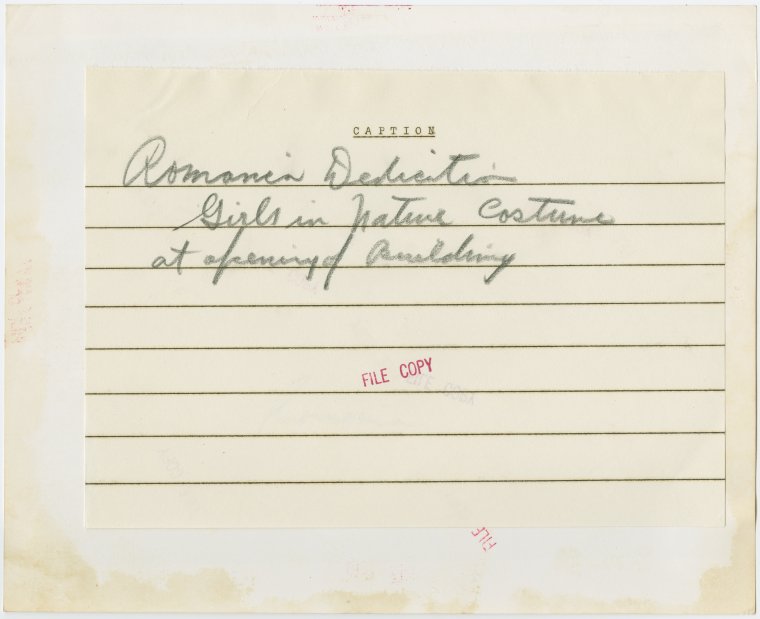 CAPTION
Romania Dedication
Girls in Native Costume
at opening of Building
FILE COPY
FILE